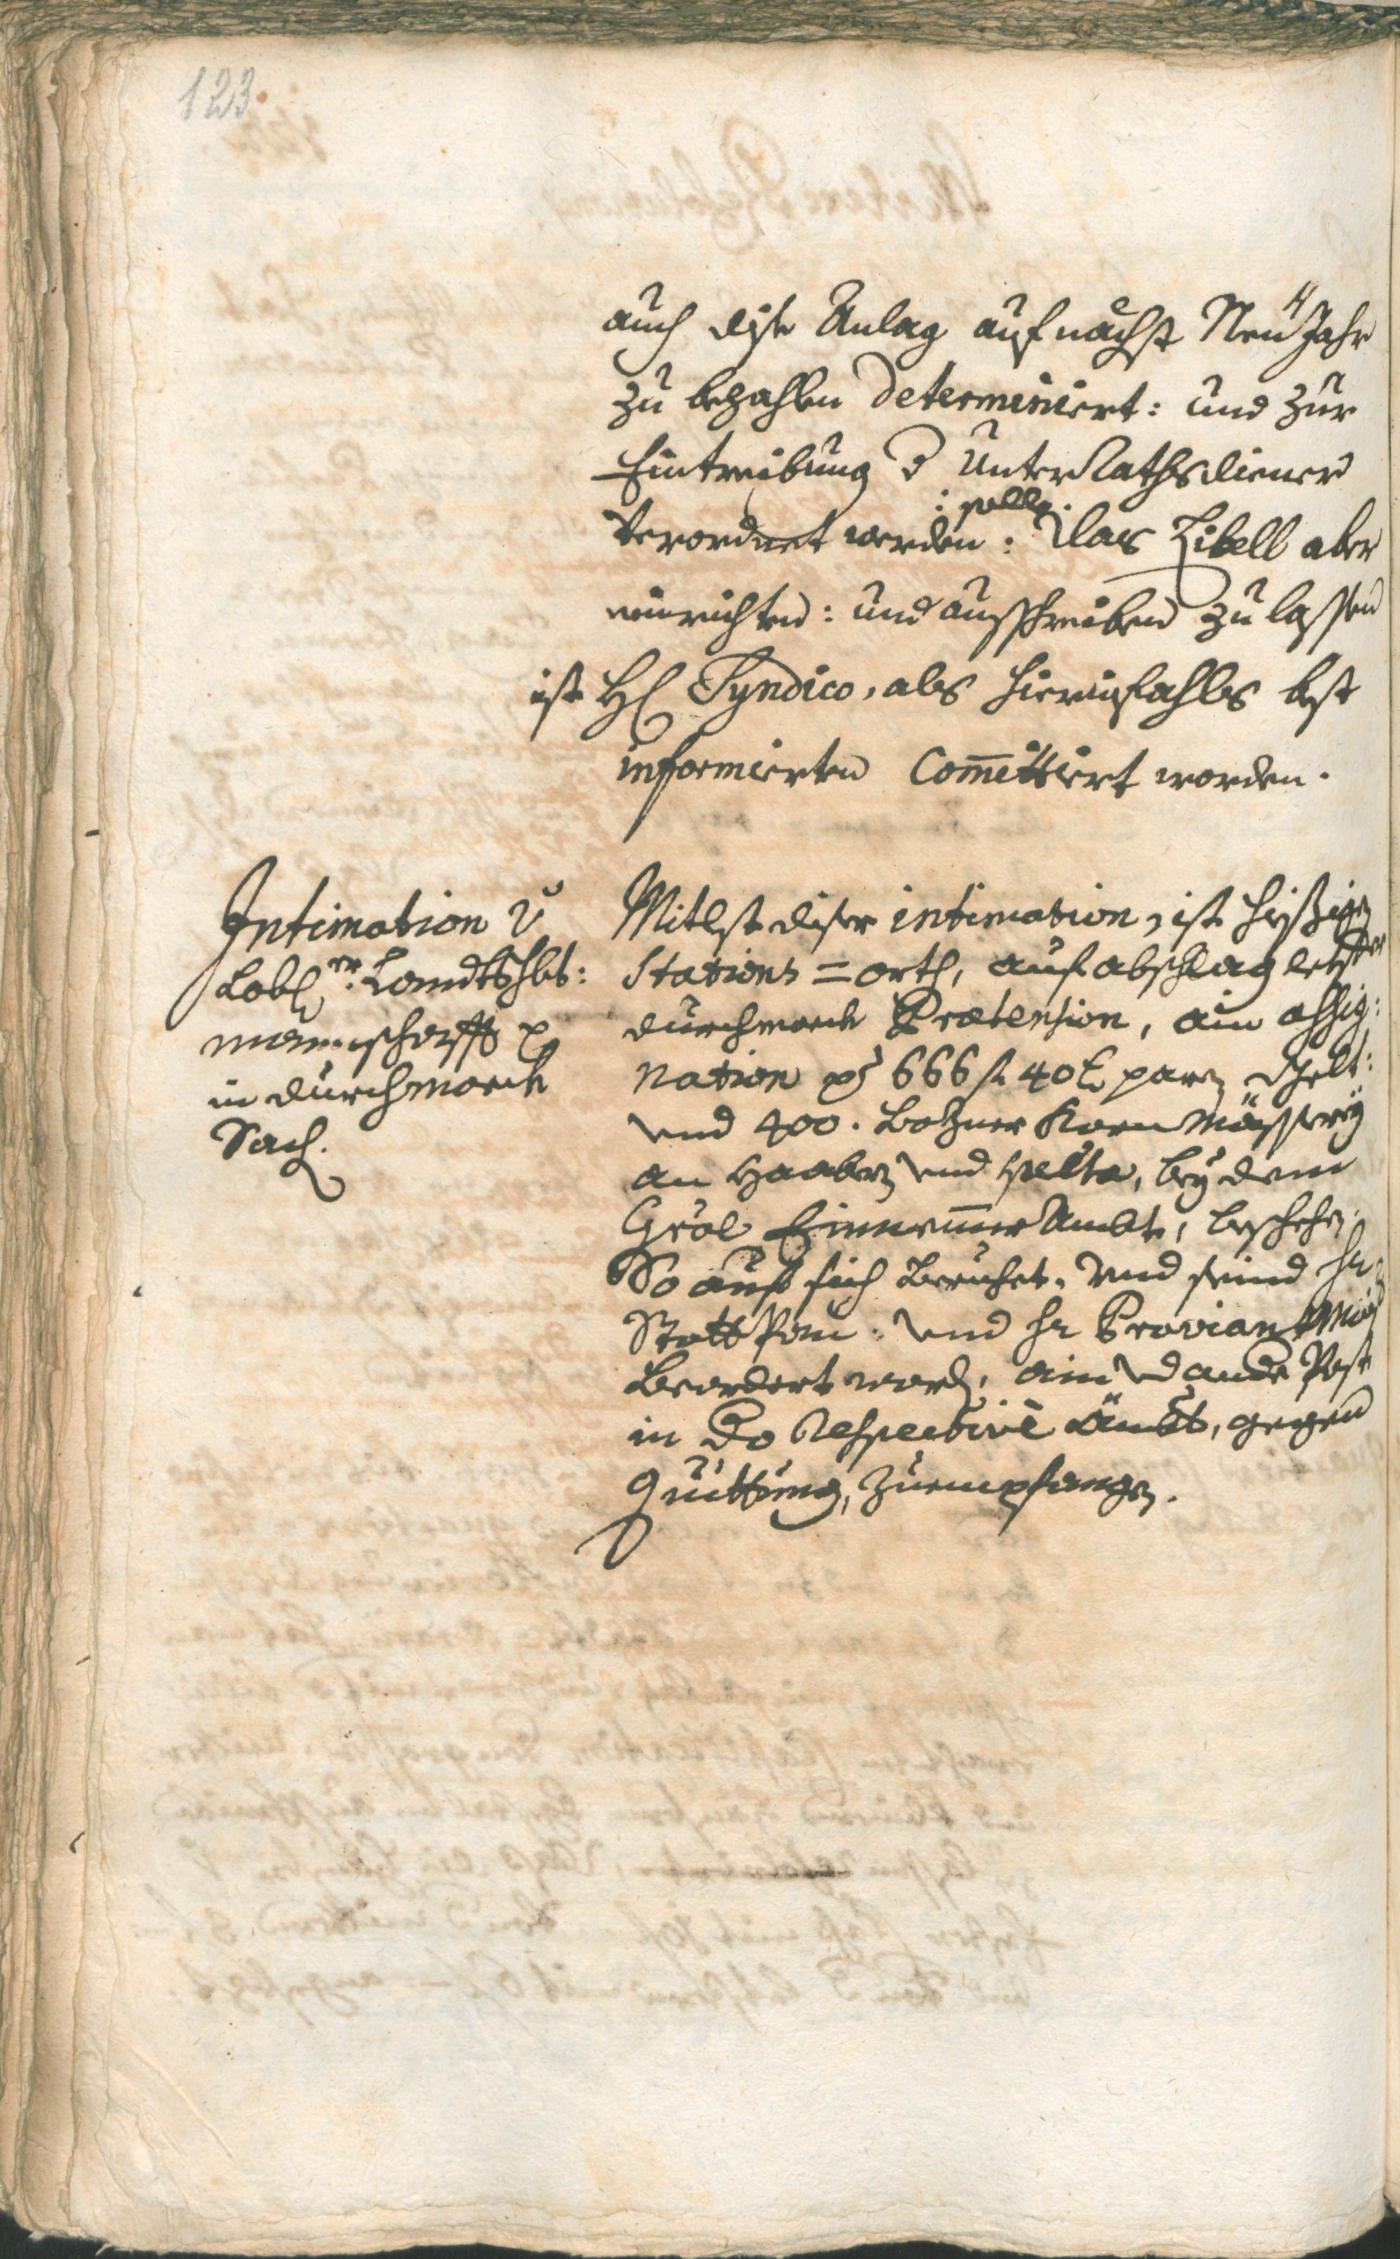 123
auch dise Anlag auf nächst Neu Jahr
zu bezahlen determiniert: und zur
Eintreibung d Unter Rathsdiener
: solle.
Verordnet werden: Das Libell aber
einrichten: und ausschreiben zu lassen
ist H Syndico, als hierinfahls best
informierten Com̅ittiert worden.
Intimation v
Lobl er Landtshbt:
mannschafft p
in durchmarch
Sach.
Mitlst diser intimation, ist hießigen
Stations = orth, auf abschlag letster
durchmarch Prætension, ein assig:
nation p 666 f 40 x parn Gelt:
und 400. Bozner Korn Mässerey
an Haabern und, bey dem
Einnemmer Ambt, beschehen.
So auf sich Beruhet. und seind Hr
Statt: und Hr Proviant
Beordert word, ein und ande Post
in do respectivè ämbt, gegen
Quittung, zuempfangen.